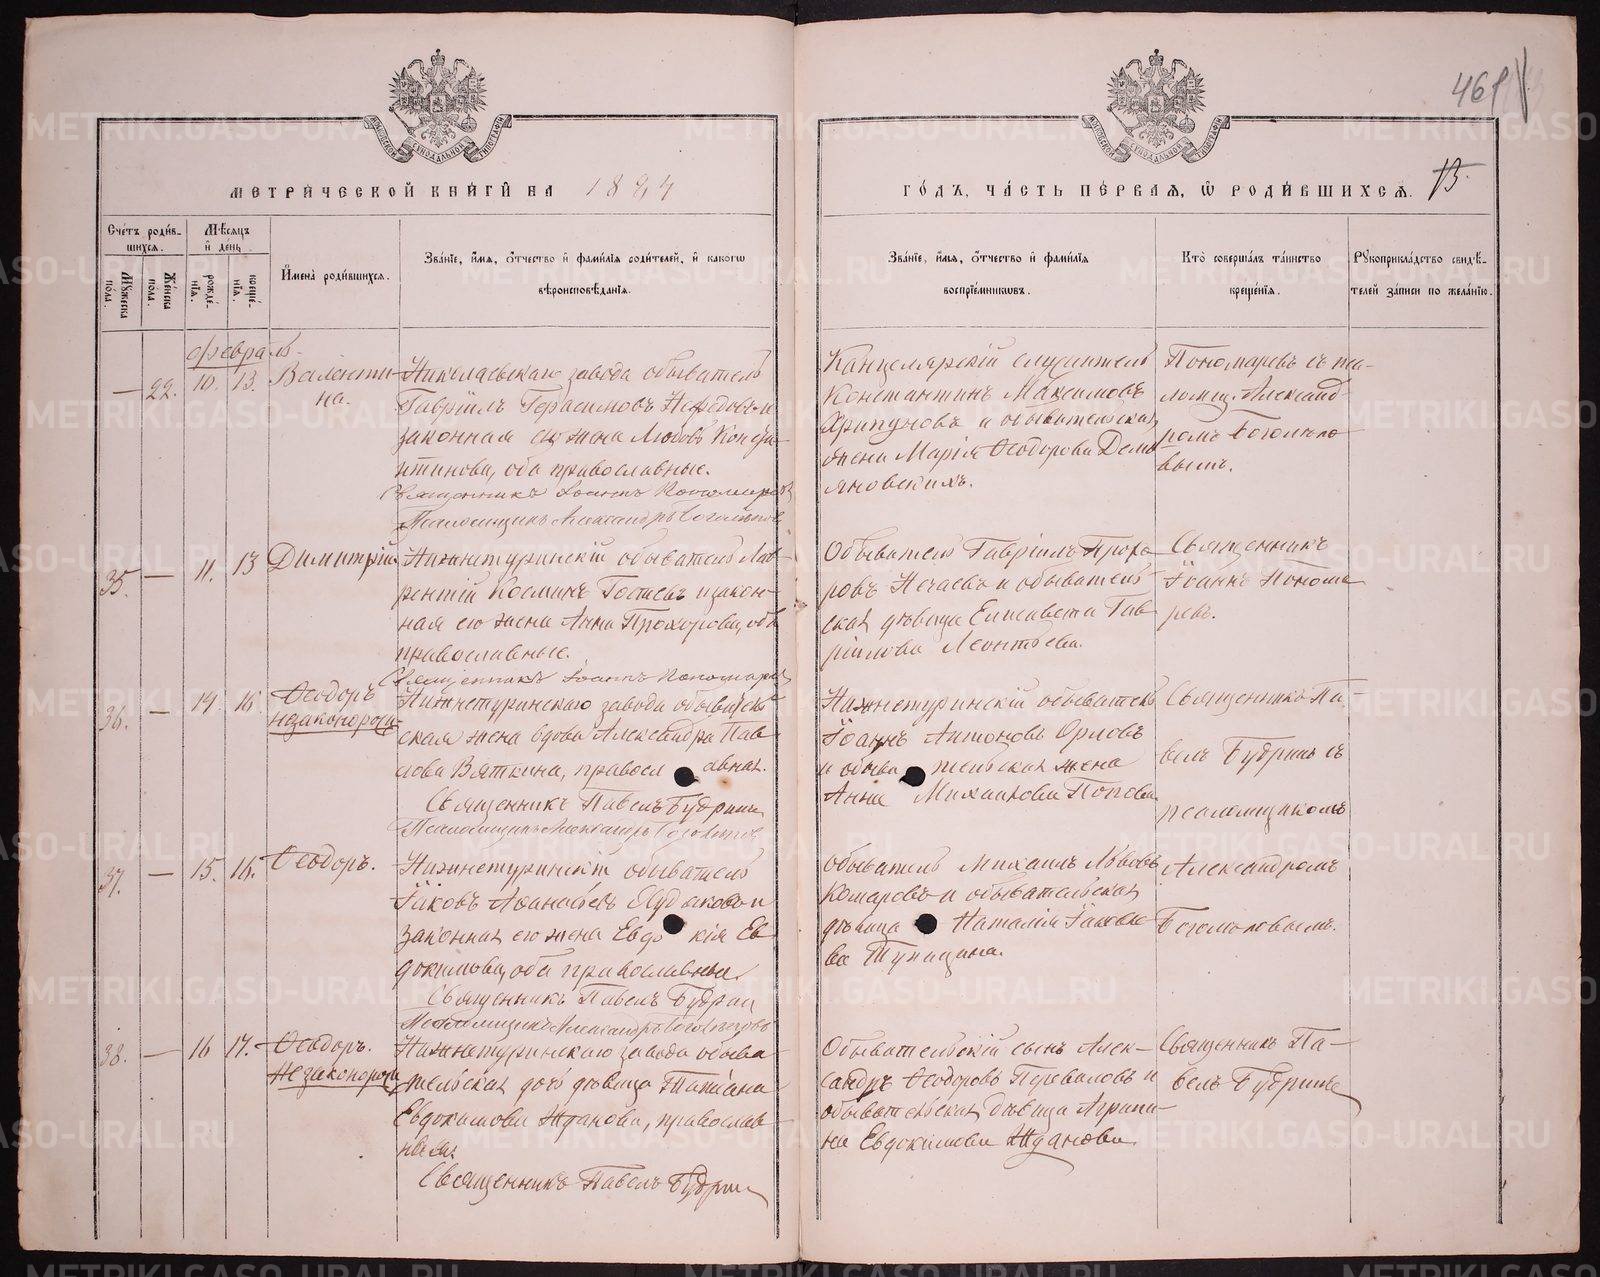 461
МОСКОВСКОЙ СУНОДАЛЬНОЙ ТИПОГРАФІИ
МОСКОВСКОЙ СУНОДАЛЬНОЙ ТИПОГРАФІИ
МЕТРИЧЕСКОЙ КНИГИ НА 1894
ГОДЪ, ЧАСТЬ ПЕРВАЯ, Ѡ РОДИВШИХСЯ.
Счетъ родив-
шихся.
Мѣсяцъ
и день
Мужеска
пола.
Женска
пола.
рожде-
нія.
креще-
нія.
Имена родившихся.
Званіе, имя, отчество и фамилія родителей, и какогѡ
вѣроисповѣданія.
Званіе, имя, отчество и фамилія
воспріемниковъ.
Кто совершалъ таинство
крещенія.
Рукоприкладство свидѣ-
телей записи по желанію.
февраль.
— 22. 10. 13. Валенти-
на.
Николаевскаго завода обыватель
Гавріилъ Герасимовъ и
законная его жена Любовь Констан-
тинова, оба православные.
Священникъ Іоаннъ Пономаревъ
Псаломщикъ Александръ Богомоловъ
Канцелярскій служитель
Константинъ Максимовъ
Хрипуновъ и обывательская
жена Марія Ѳеодорова Демь
яновскихъ.
Пономаревъ съ пса-
ломщ. Александ-
ромъ Богомоло
вымъ.
35. — 11. 13 Димитрій
Нижнетуринскій обыватель Лав-
рентій Косминъ Гостевъ и закон-
ная его жена Анна Прохорова, оба
православные.
Священникъ Іоаннъ Пономаревъ
Обыватель Гавріилъ Прохо
ровъ Нечаевъ и обыватель-
ская дѣвица Елисавета Гав-
ріилова Леонтьева.
Священникъ
Іоаннъ Понома
ревъ.
36. — 14 16 Ѳеодоръ
незаконорож.
Нижнетуринскаго завода обыватель
ская жена вдова Александра Пав-
лова Вяткина, правосл авная.
Священникъ Павелъ Будринъ
Псаломщикъ Александръ Богомоловъ
Нижнетуринскій обыватель
Іоаннъ Антоновъ Орловъ
и обыва тельская жена
Анна Михаилова Попова
Священникъ Па-
велъ Будринъ съ
псаломщикомъ
37. — 15. 16. Ѳеодоръ.
Нижнетуринскій обыватель
Іаковъ Аѳанасьевъ и
законная его жена Евдо кія Ев
докимова, оба православные.
Священникъ Павелъ Будринъ
Псаломщикъ Александръ Богомоловъ
Обыватель Михаилъ Львовъ
Комаровъ и обывательская
дѣвица Наталія Іакови
ва Тупицина.
Александромъ
Богомоловымъ.
38. — 16 17. Ѳеодоръ.
незаконорож.
Нижнетуринскаго завода обыва
тельская дочь дѣвица Татіана
Евдокимова Жданова, православ-
ная.
Священникъ Павелъ Будринъ
Обывательскій сынъ Алек-
сандръ Ѳеодоровъ Переваловъ и
обывательская дѣвица Агрипи-
на Евдокимова Жданова
Священникъ Па-
велъ Будринъ